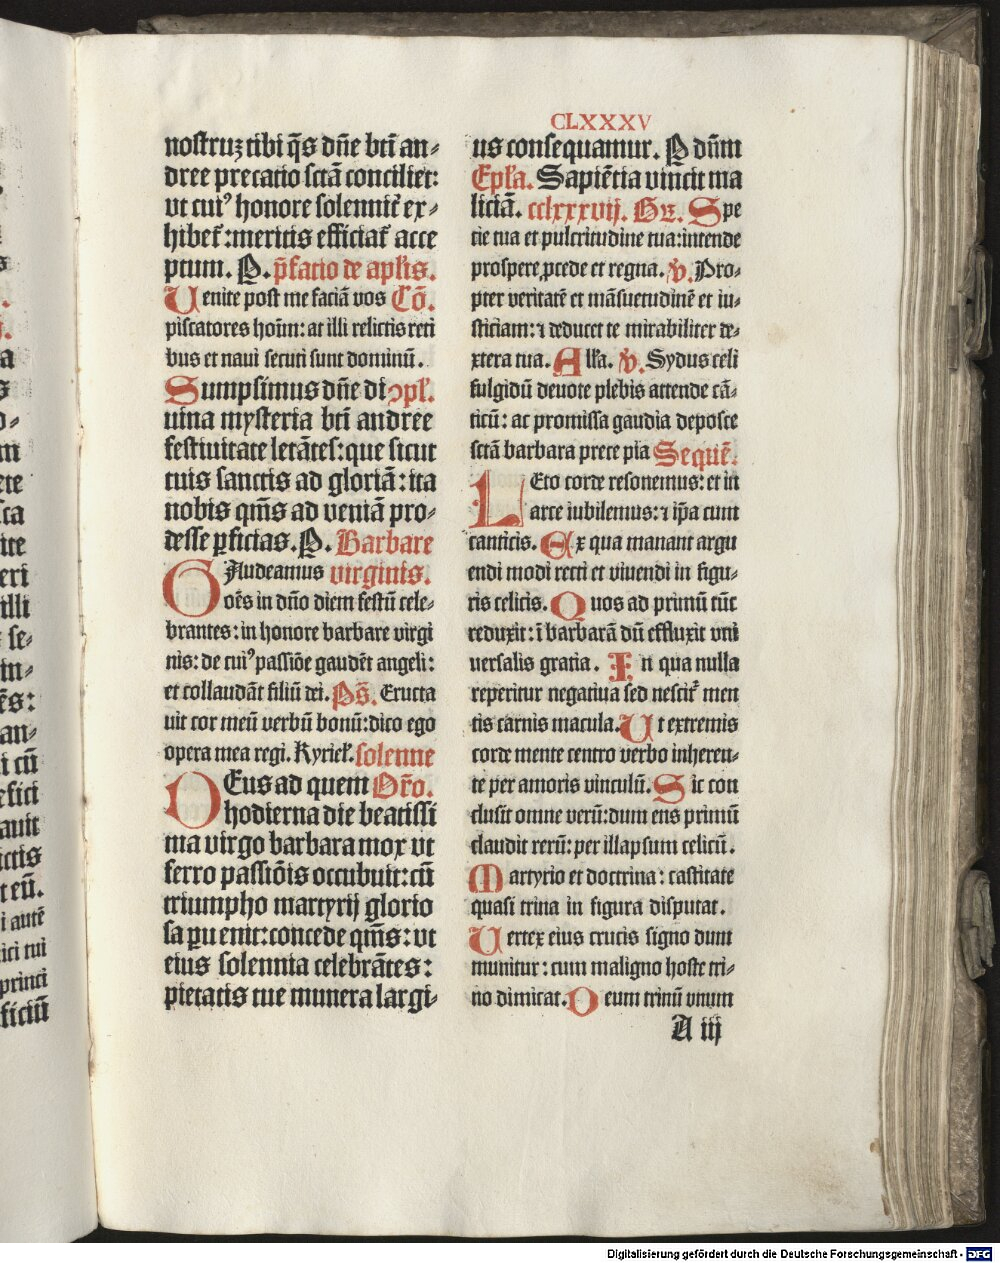 CLXXXV
nostruz tibi q̄s dn̄e bt̄i an⸗
dree precatio sctā conciliet:
vt cuiꝰ honore solennit̄ ex⸗
hibet᷑:meritis efficiat᷑ acce
ptum. P. p̄fatio de apl̄is.
Uenite post me faciā vos Cō.
piscatores hoīm: at illi relictis reti
bus et naui secuti sunt dominū.
Sumpsimus dn̄e di ↄpl̄.
uina mysteria bt̄i andree
festiuitate letātes:que sicut
tuis sanctis ad gloriā:ita
nobis qm̄s ad veniā pro⸗
desse ꝑficias.P. Barbare
GAudeamus virginis.
oēs in dn̄o diem festū cele⸗
brantes:in honore barbare virgi
nis: de cuiꝰ passiōe gaudēt angeli:
et collaudāt filiū dei. Ps̄. Eructa
uit cor meū verbū bonū:dico ego
opera mea regi. Kyriel̄. solenne
DEus ad quem Or̄o.
hodierna die beatissi
ma virgo barbara mox vt
ferro passiōis occubuit:cū
triumpho martyrij glorio
sa ꝑuenit:concede qm̄s:vt
eius solennia celebrātes:
pietatis tue munera largi⸗
us consequamur. P dn̄m
Epl̄a. Sapiētia vincit ma
liciā. cclxxxvij. Gr̄. Spe
cie tua et pulcritudine tua:intende
prospere ꝓcede et regna. v̄. Pro⸗
pter veritatē et māsuetudinē et iu⸗
sticiam:⁊ deducet te mirabiliter de⸗
xtera tua. All̄a. v̄. Sydus celi
fulgidū deuote plebis attende cā⸗
ticū: ac promissa gaudia deposce
sctā barbara prece pia Sequē.
LEto corde resonemus: et in
arce iubilemus:⁊ ip̄a cum
canticis. Ex qua manant argu
endi modi recti et viuendi in figu⸗
ris celicis. Quos ad primū tūc
reduxit:ī barbarā dū effluxit vni
uersalis gratia. In qua nulla
reperitur negatiua sed nescit᷑ men
tis carnis macula. Ut extremis
corde mente centro verbo inheren⸗
te per amoris vinculū. Sic con
clusit omne verū:dum ens primū
claudit rerū: per illapsum celicū.
Martyrio et doctrina: castitate
quasi trina in figura disputat.
Uertex eius crucis signo dum
munitur: cum maligno hoste tri⸗
no dimicat. Deum trinū vnum
A iij
Digitalisierung gefördert durch die Deutsche Forschungsgemeinschaft - DFG